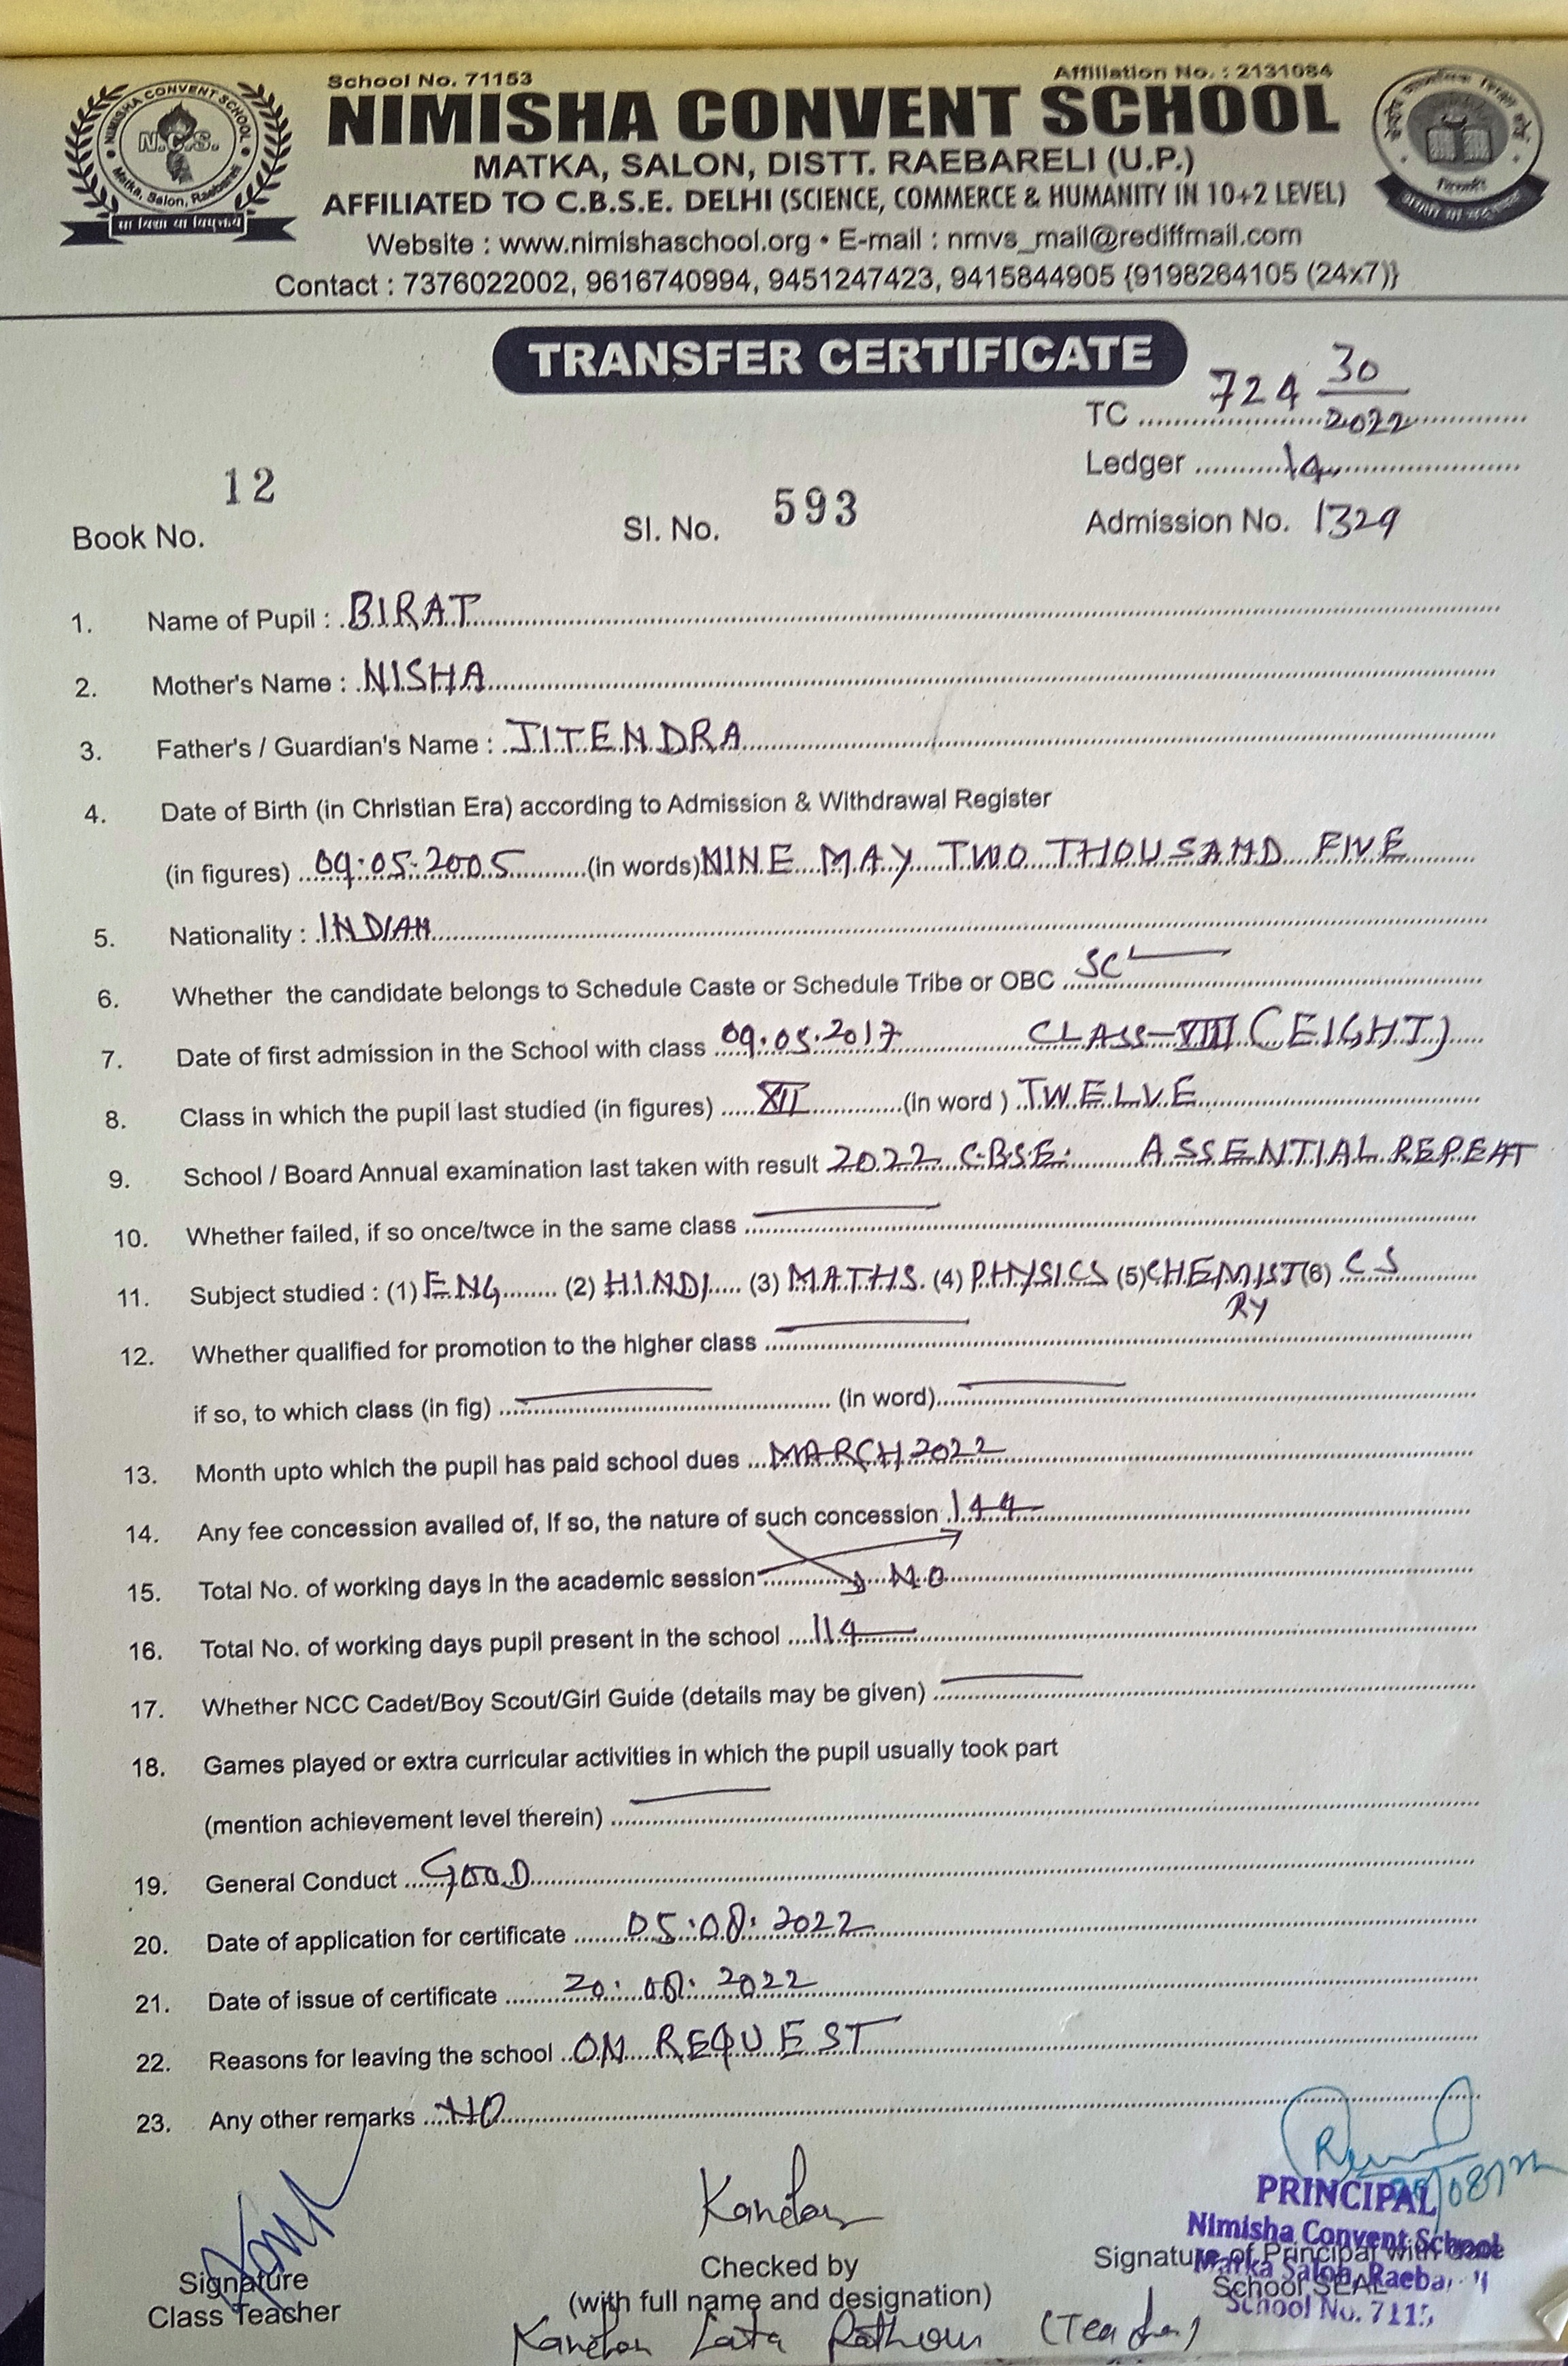 School No. 71153
Affiliation No. : 2131084
NIMISHA CONVENT SCHOOL
MATKA, SALON, DISTT. RAEBARELI (U.P.)
AFFILIATED TO C.B.S.E. DELHI (SCIENCE, COMMERCE & HUMANITY IN 10+2 LEVEL)
Website : www.nimishaschool.org • E-mail : nmvs_mail@rediffmail.com
Contact : 7376022002, 9616740994, 9451247423, 9415844905 {9198264105 (24x7)}
NIMISHA CONVENT SCHOOL
N.C.S.
Matka, Salon, Raebareli
सा विद्या या विमुक्तये
TRANSFER CERTIFICATE
TC 724 30/2022
Ledger 14
Book No. 12 Sl. No. 593 Admission No. 1329
1. Name of Pupil : BIRAT
2. Mother's Name : NISHA
3. Father's / Guardian's Name : JITENDRA
4. Date of Birth (in Christian Era) according to Admission & Withdrawal Register
(in figures) 09:05:2005 (in words) NINE MAY TWO THOUSAND FIVE
5. Nationality : INDIAN
6. Whether the candidate belongs to Schedule Caste or Schedule Tribe or OBC SC
7. Date of first admission in the School with class 09.05.2017 CLASS-VIII (EIGHT)
8. Class in which the pupil last studied (in figures) XII (in word ) TWELVE
9. School / Board Annual examination last taken with result 2022 C.B.S.E. ASSENTIAL REPEAT
10. Whether failed, if so once/twce in the same class
11. Subject studied : (1) ENG (2) HINDI (3) MATHS. (4) PHYSICS (5) CHEMIST (6) CS
RY
12. Whether qualified for promotion to the higher class
if so, to which class (in fig) (in word)
13. Month upto which the pupil has paid school dues MARCH 2022
14. Any fee concession availed of, If so, the nature of such concession 144
15. Total No. of working days in the academic session NO
16. Total No. of working days pupil present in the school 114
17. Whether NCC Cadet/Boy Scout/Girl Guide (details may be given)
18. Games played or extra curricular activities in which the pupil usually took part
(mention achievement level therein)
19. General Conduct GOOD
20. Date of application for certificate 05:08:2022
21. Date of issue of certificate 20:08:2022
22. Reasons for leaving the school ON REQUEST
23. Any other remarks NO
Kanchan
PRINCIPAL
Nimisha Convent School
Signature
Class Teacher
Checked by
(with full name and designation)
Signature of Principal with Date
School SEAL
School No. 7115
Kanchan Lata Rathour (Teacher)